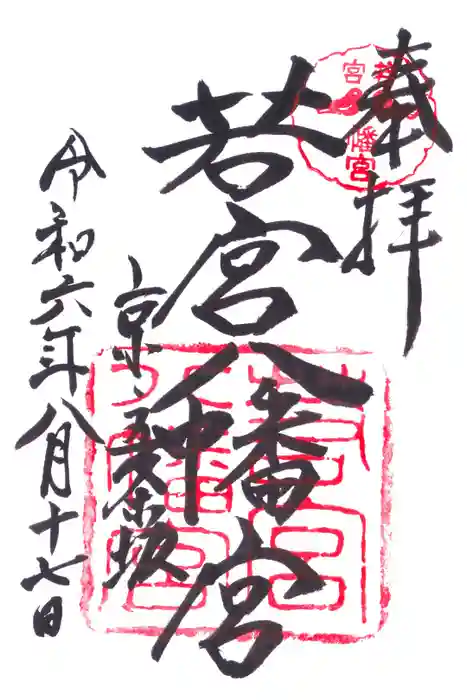 奉拝
若宮八幡宮
京、五条坂
令和六年八月十七日
若宮八幡宮